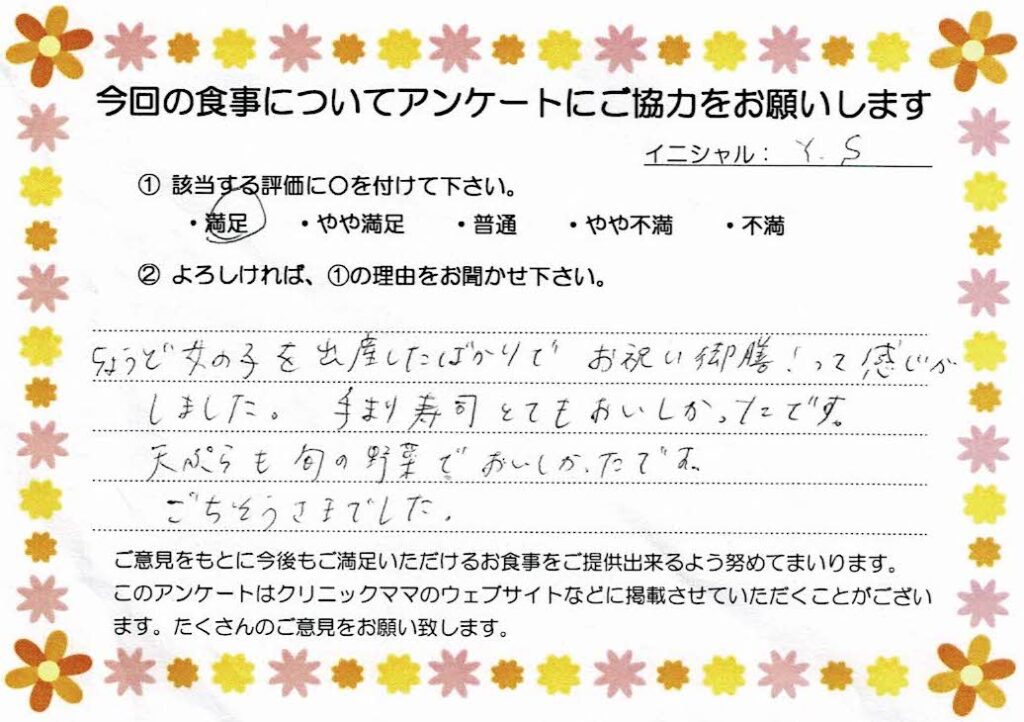 今回の食事についてアンケートにご協力をお願いします
イニシャル： Y. S
① 該当する評価に〇を付けて下さい。
・満足 ・やや満足 ・普通 ・やや不満 ・不満
② よろしければ、①の理由をお聞かせ下さい。
ちょうど女の子を出産したばかりで お祝い御膳！って感じが
しました。 手まり寿司とてもおいしかったです。
天ぷらも旬の野菜でおいしかったです。
ごちそうさまでした。
ご意見をもとに今後もご満足いただけるお食事をご提供出来るよう努めてまいります。
このアンケートはクリニックママのウェブサイトなどに掲載させていただくことがござい
ます。たくさんのご意見をお願い致します。